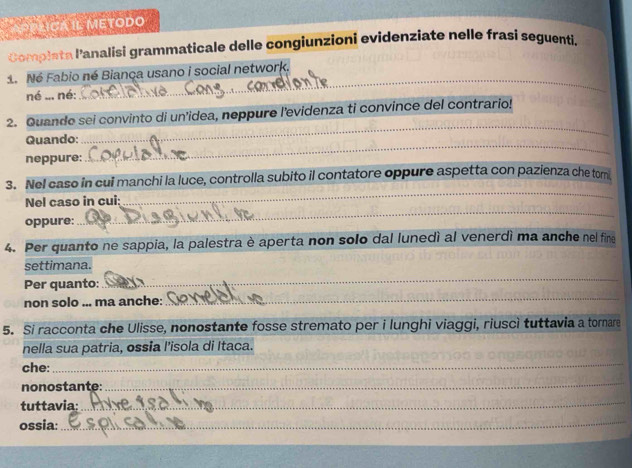 APPLICA IL METODO
Completa l'analisi grammaticale delle congiunzioni evidenziate nelle frasi seguenti.
1. Né Fabio né Bianca usano i social network.
né ... né: Correlativa Cong. correlante
2. Quando sei convinto di un'idea, neppure l'evidenza ti convince del contrario!
Quando:
neppure: Copulative
3. Nel caso in cui manchi la luce, controlla subito il contatore oppure aspetta con pazienza che torni
Nel caso in cui:
oppure: Disgiuntive
4. Per quanto ne sappia, la palestra è aperta non solo dal lunedì al venerdì ma anche nel fine
settimana.
Per quanto:
non solo ... ma anche: Correlative
5. Si racconta che Ulisse, nonostante fosse stremato per i lunghi viaggi, riuscì tuttavia a tornare
nella sua patria, ossia l'isola di Itaca.
che:
nonostante:
tuttavia:
ossia: